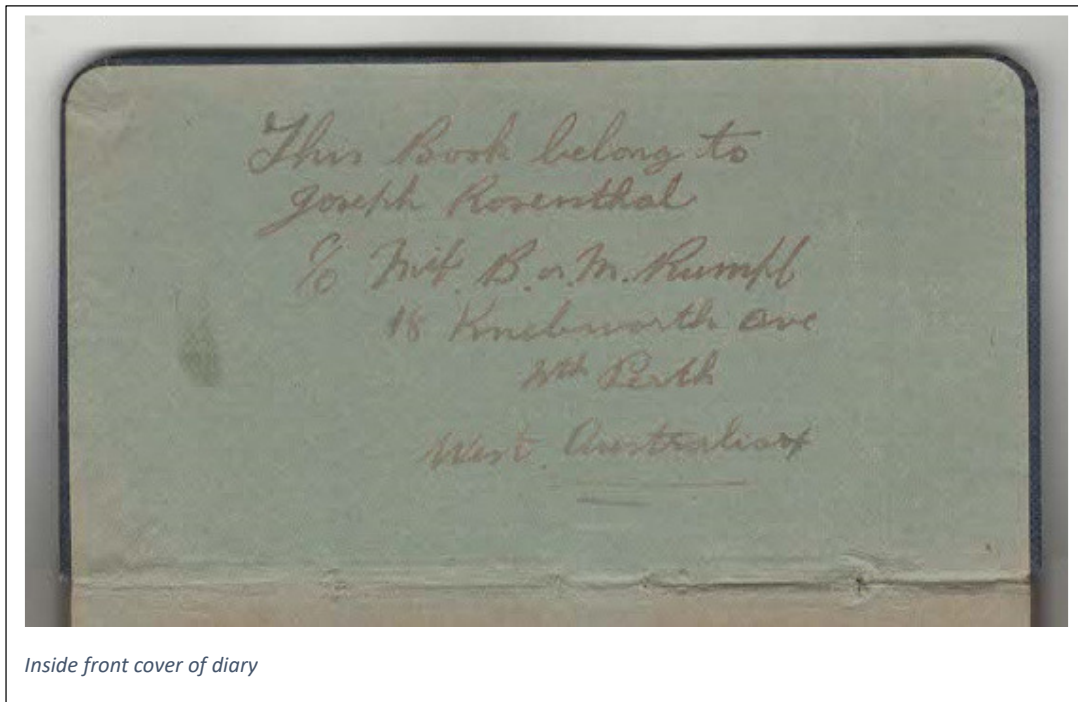 This Book belong to
Joseph Rosenthal
c/o B. or M. Rumpf
18 Knebworth ave
Nth Perth
West. Australia
Inside front cover of diary